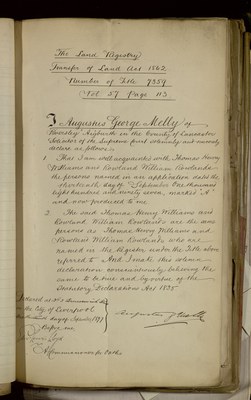 The Land Registry
Transfer of Land Act 1862
Number of Title 7359
Vol. 57 Page 113
I Augustus George Melly of
in the County of Lancaster
Solicitor of the Supreme Court solemnly and sincerely
declare as follows :-
1 That I am well acquainted with Thomas Henry
Williams and Rowland William Rowlands
the persons named in an application dated the
day of September One thousand
eight hundred and ninety seven, marked "A"
and now produced to me.
2 The said Thomas Henry Williams and
Rowland William Rowlands are the same
persons as Thomas Henry Williams and
Rowland William Rowlands who are
named in the Register under the Title above
referred to And I make this solemn
declaration conscientiously believing the
same to be true and by virtue of the
Statutory Declarations Act 1835
Declared at
in the City of Liverpool
day of 1897
Before me
Augustus G Melly
A Commissioner for Oaths